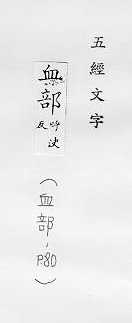 五經文字
血部
呼決反
（血部，P.80）